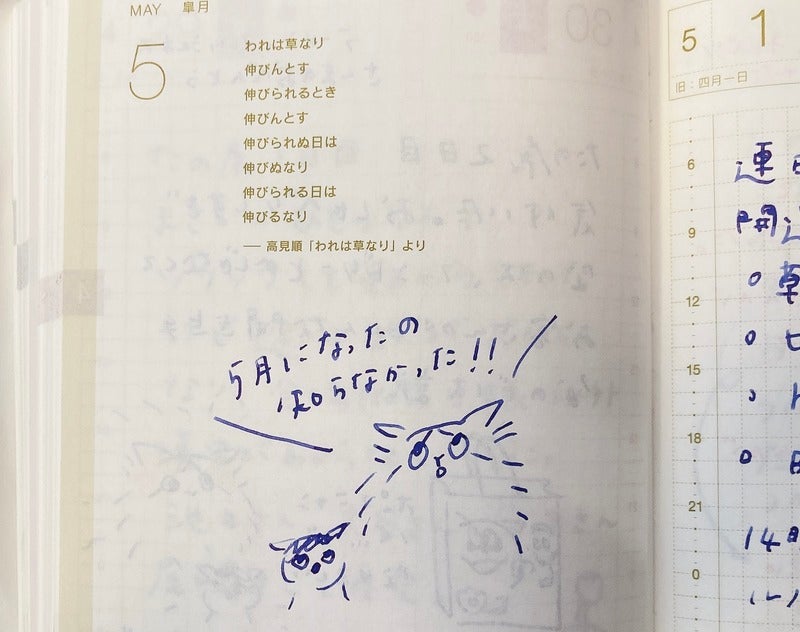 MAY 皐月
5
われは草なり
伸びんとす
伸びられるとき
伸びんとす
伸びられぬ日は
伸びぬなり
伸びられる日は
伸びるなり
── 高見順「われは草なり」より
5月になったの
知らなかった!!
5 1
旧:四月一日
6
9
12
15
18
21
0
連
開
14